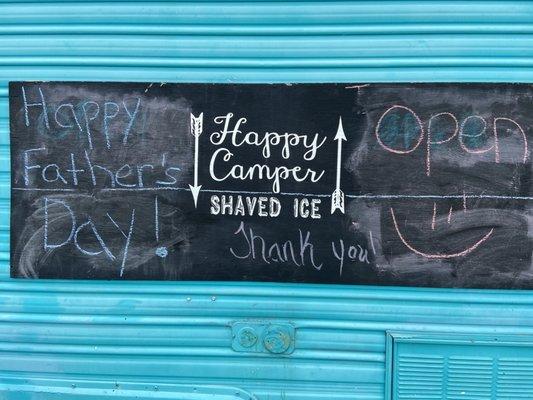 Happy
Father's
Day!
Happy
Camper
SHAVED ICE
Thank you!
Open